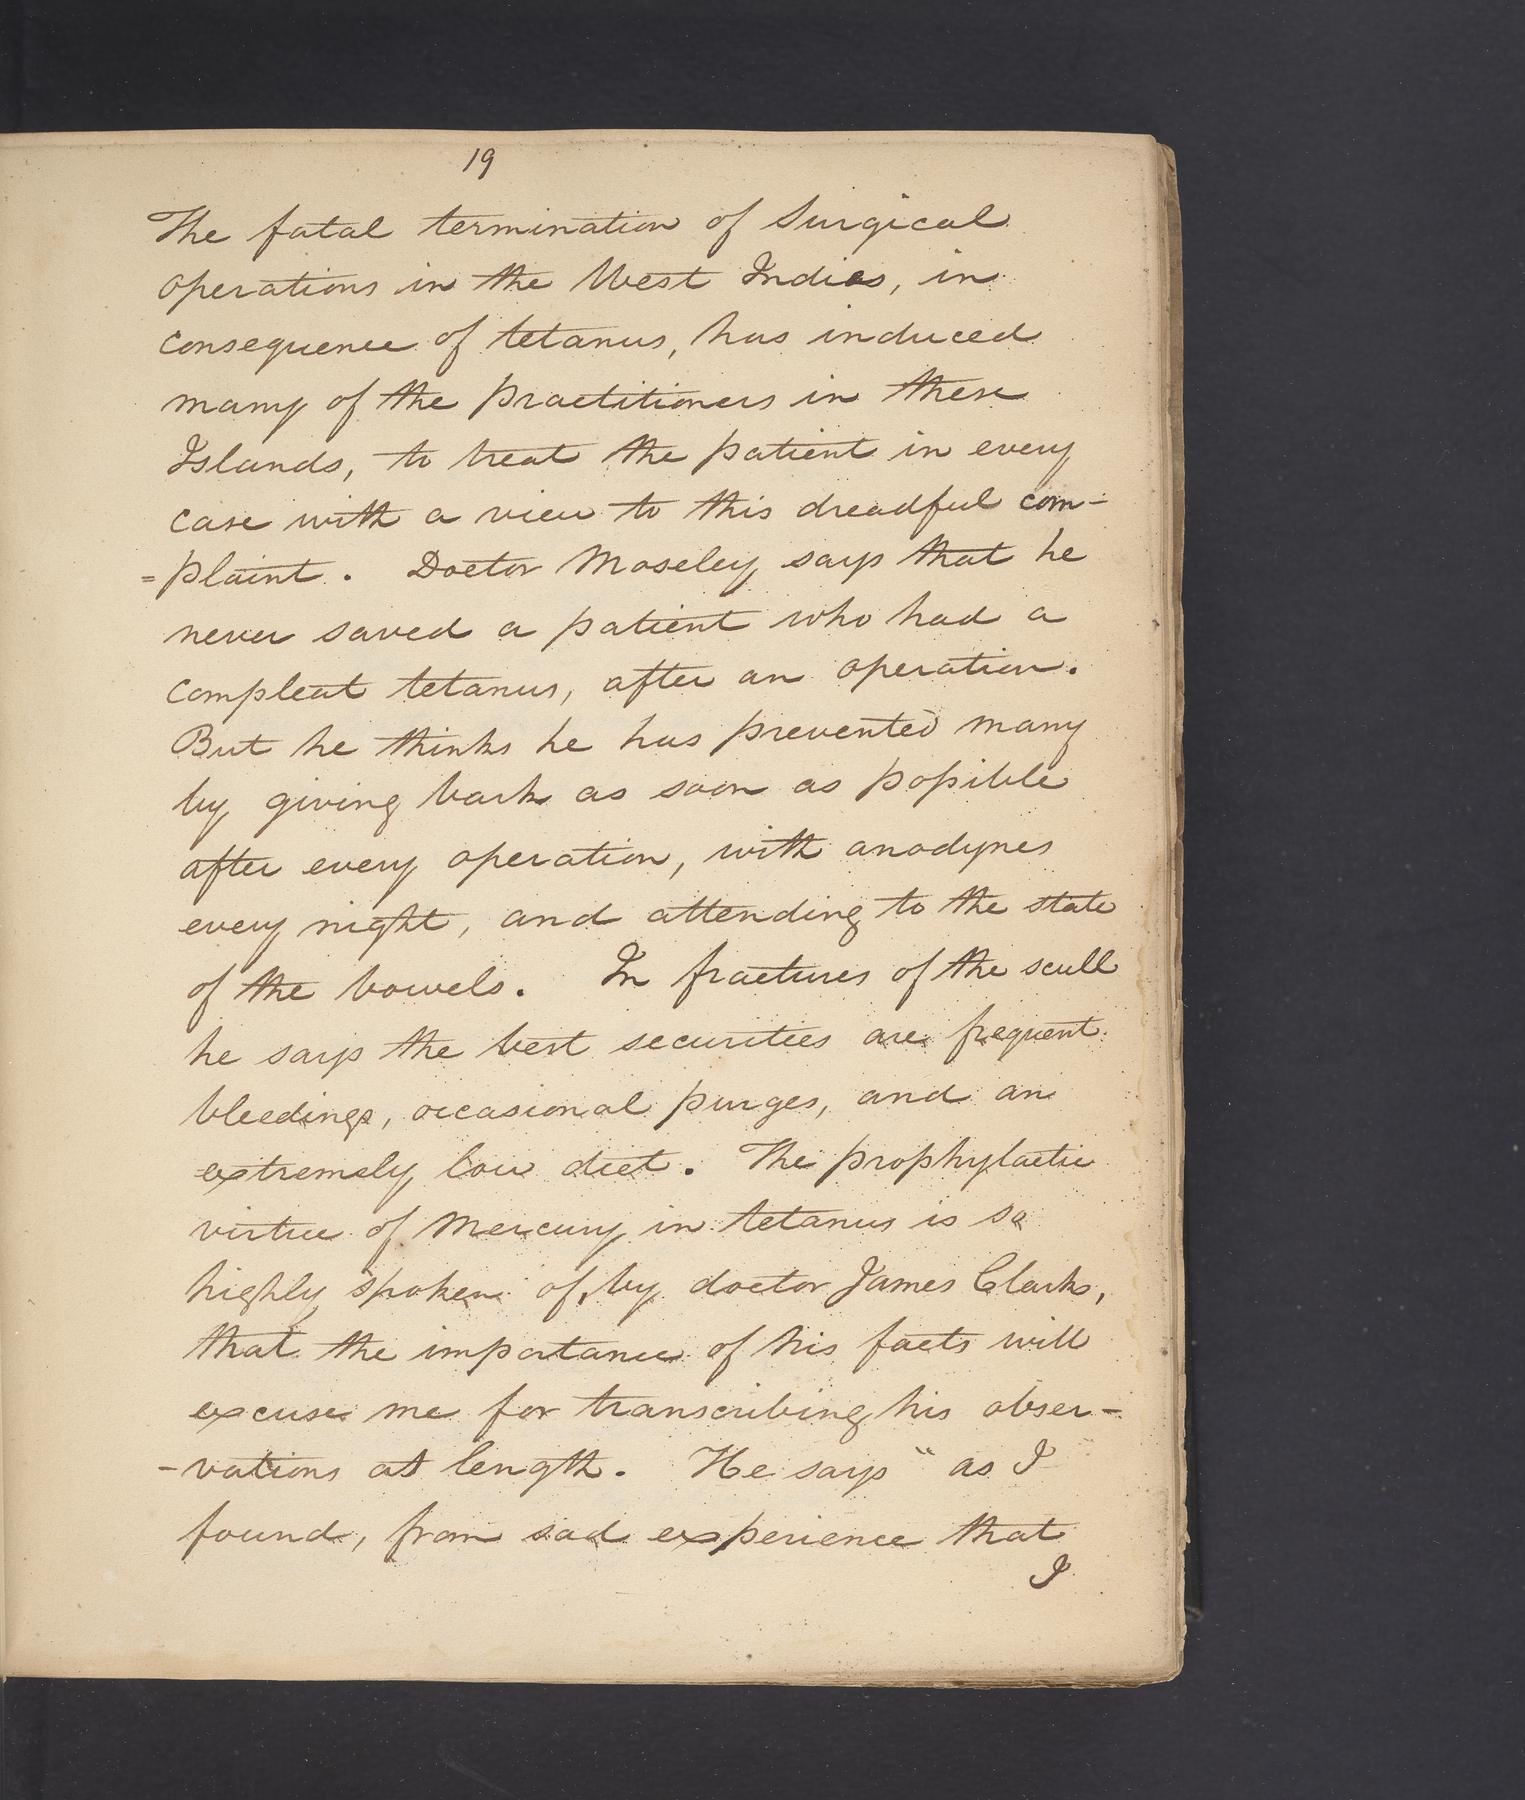 19
The fatal termination of Surgical
operations in the West Indies, in
consequence of tetanus, has induced
many of the practitioners in these
Islands, to treat the patient in every
case with a view to this dreadful com-
=plaint. Doctor Moseley says that he
never saved a patient who had a
compleat tetanus, after an operation.
But he thinks he has prevented many
by giving bark as soon as possible
after every operation, with anodynes
every night, and attending to the state
of the bowels. In fractures of the scull
he says the best securities are frequent
bleedings, occasional purges, and an
extremely low diet. The prophylactic
virtue of Mercury in tetanus is so
highly spoken of, by doctor James Clark,
that the importance of his facts will
excuse me for transcribing his obser-
-vations at length. He says "as I
found, from sad experience that
I